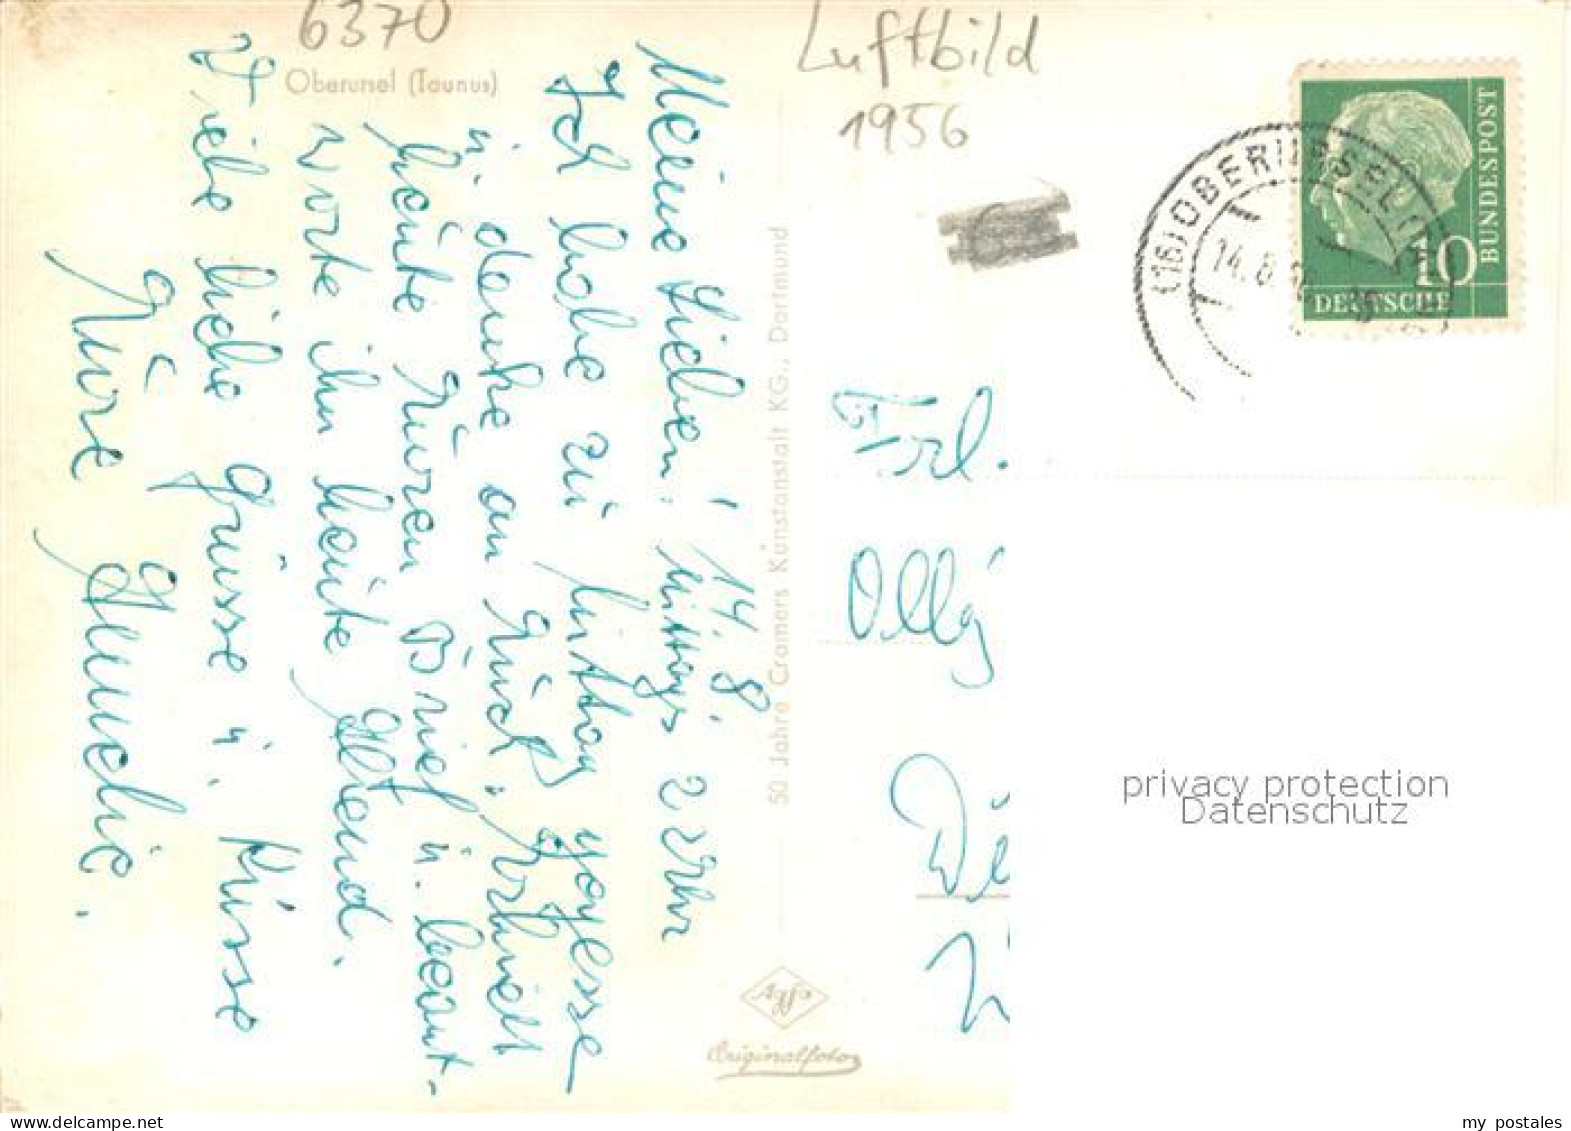 6370
Oberursel (Taunus)
Luftbild
1956
Meine Lieben! 14.8.
Mittags 2 Uhr
Ich habe zu Mittag gegesse
u. denke an Euch. Erhielt
heute Euren Brief u. beant-
worte ihn heute Abend.
Viele liebe Grüsse u. Küsse
Eure
50 Jahre Cramers Kunstanstalt KG., Dortmund
Agfa
Originalfoto
(16) OBERURSEL (T
14.8.5
BUNDESPOST
10
DEUTSCHE
Frl.
Olly
privacy protection
Datenschutz
www.delcampe.net
my_postales